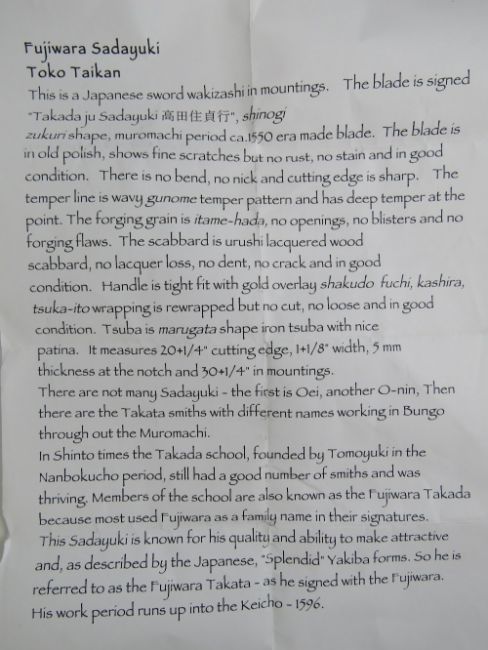 Fujiwara Sadayuki
Toko Taikan
This is a Japanese sword wakizashi in mountings. The blade is signed
"Takada ju Sadayuki 高田住貞行", shinogi
zukuri shape, muromachi period ca.1550 era made blade. The blade is
in old polish, shows fine scratches but no rust, no stain and in good
condition. There is no bend, no nick and cutting edge is sharp. The
temper line is wavy gunome temper pattern and has deep temper at the
point. The forging grain is itame-hada, no openings, no blisters and no
forging flaws. The scabbard is urushi lacquered wood
scabbard, no lacquer loss, no dent, no crack and in good
condition. Handle is tight fit with gold overlay shakudo fuchi, kashira,
tsuka-ito wrapping is rewrapped but no cut, no loose and in good
condition. Tsuba is marugata shape iron tsuba with nice
patina. It measures 20+1/4" cutting edge, 1+1/8" width, 5 mm
thickness at the notch and 30+1/4" in mountings.
There are not many Sadayuki - the first is Oei, another O-nin, Then
there are the Takata smiths with different names working in Bungo
through out the Muromachi.
In Shinto times the Takada school, founded by Tomoyuki in the
Nanbokucho period, still had a good number of smiths and was
thriving. Members of the school are also known as the Fujiwara Takada
because most used Fujiwara as a family name in their signatures.
This Sadayuki is known for his quality and ability to make attractive
and, as described by the Japanese, "Splendid" Yakiba forms. So he is
referred to as the Fujiwara Takata - as he signed with the Fujiwara.
His work period runs up into the Keicho - 1596.